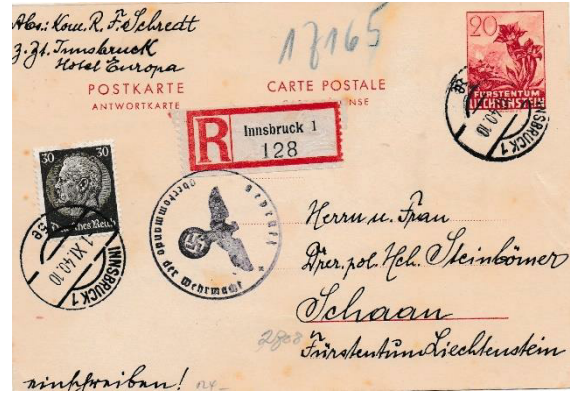 Abs.: Kom. R. F. Schredt
z. Zt. Innsbruck
Hotel Europa
17165
20
FÜRSTENTUM
LIECHTENSTEIN
POSTKARTE
ANTWORTKARTE
CARTE POSTALE
NSE
R
Innsbruck 1
128
INNSBRUCK 1
40.10
30 30
Deutsches Reich
INNSBRUCK 1
1.XI.40.10
Geprüft
Oberkommando der Wehrmacht
Herrn u. Frau
Drer. pol. Hch. Steinbömer
Schaan
Fürstentum Liechtenstein
einschreiben!